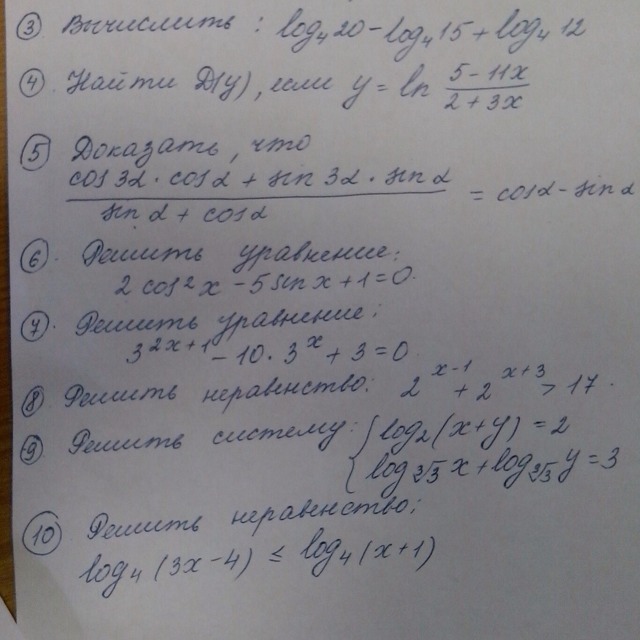 ③ Вычислить: log₄20 - log₄15 + log₄12
④ Найти D(y), если y = ln (5 - 11x)/(2 + 3x)
⑤ Доказать, что
(cos 3α · cos α + sin 3α · sin α)/(sin α + cos α) = cos α - sin α
⑥ Решить уравнение:
2 cos²x - 5 sin x + 1 = 0
⑦ Решить уравнение:
3^(2x+1) - 10 · 3^x + 3 = 0
⑧ Решить неравенство: 2^(x-1) + 2^(x+3) > 17.
⑨ Решить систему: { log₂(x+y) = 2
{ log_(2√3) x + log_(2√3) y = 3
⑩ Решить неравенство:
log₄(3x-4) ≤ log₄(x+1)